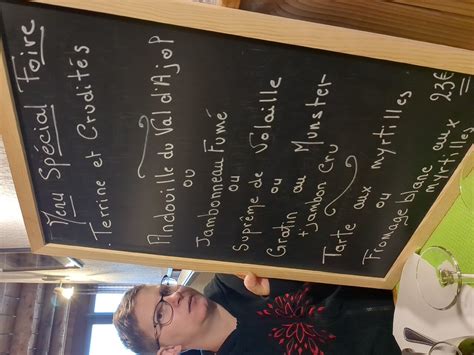 Menu Spécial Foire
. Terrine et Crudités
Andouille du Val d'Ajol
ou
Jambonneau Fumé
ou
Suprême de Volaille
Gratin au Munster
+ jambon cru
Tarte aux myrtilles
ou
Fromage blanc aux
myrtilles
23€